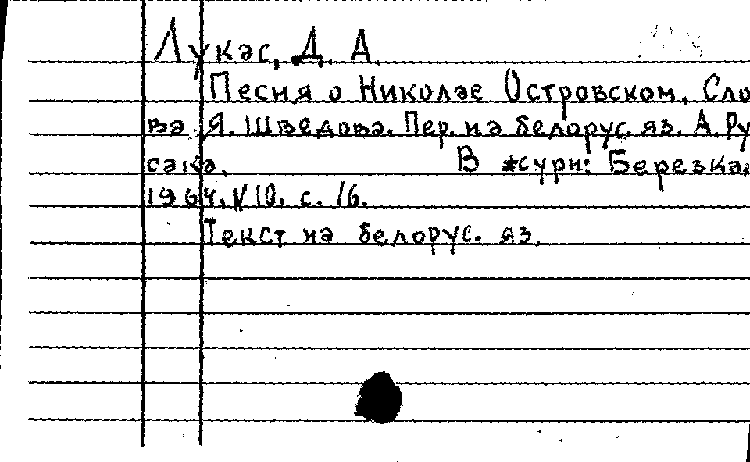 Лукас, Д. А.
Песня о Николае Островском. Сло
ва Я. Шведова. Пер. на белорус. яз. А. Ру
сака. В журн: Березка,
1964. №10. с. 16.
Текст на белорус. яз.